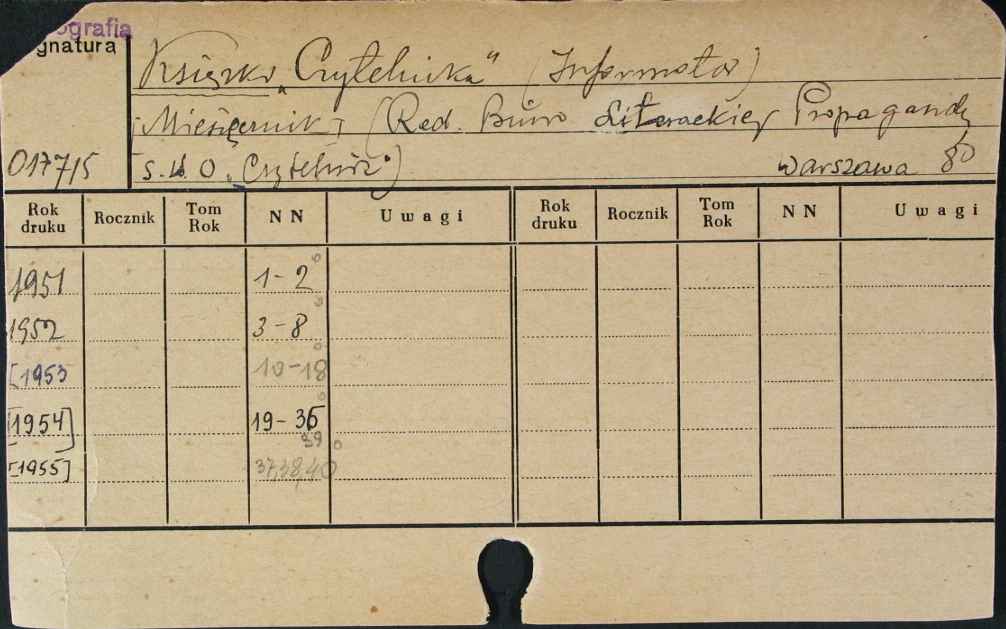 ografia
gnatura
Książka „Czytelnika" (Informator)
[Miesięcznik] (Red. Biuro Literackiej Propagandy
0177/5 S. W. O. „Czytelnik") Warszawa 80
Rok druku Rocznik Tom Rok NN Uwagi Rok druku Rocznik Tom Rok NN Uwagi
1951 1-2
1952 3-8
[1953 10-18
[1954] 19-36
39
[1955] 37,38,40